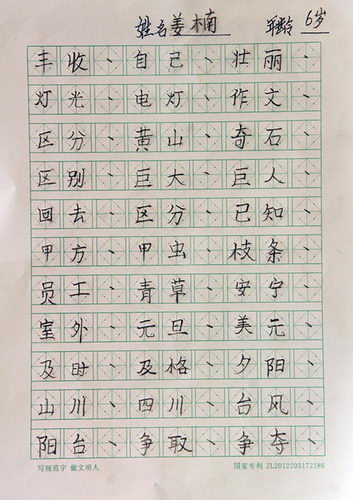 姓名姜楠 年龄 6岁
丰收、自己、壮丽、
灯光、电灯、作文、
区分、黄山、奇石、
区别、巨大、巨人、
回去、区分、已知、
甲方、甲虫、枝条、
员工、青草、安宁、
室外、元旦、美元、
及时、及格、夕阳、
山川、四川、台风、
阳台、争取、争夺、
写规范字 做文明人 国家专利 ZL2012203172186